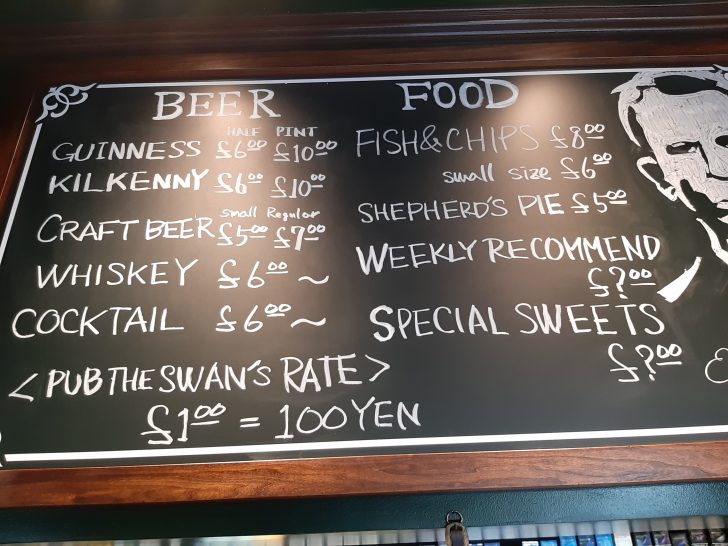 BEER
HALF PINT
GUINNESS £6.00 £10.00
KILKENNY £6.00 £10.00
Small Regular
CRAFT BEER £5.00 £7.00
WHISKEY £6.00 ~
COCKTAIL £6.00 ~
<PUB THE SWAN'S RATE>
£1.00 = 100 YEN
FOOD
FISH&CHIPS £8.00
small size £6.00
SHEPHERD'S PIE £5.00
WEEKLY RECOMMEND
£?.00
SPECIAL SWEETS
£?.00